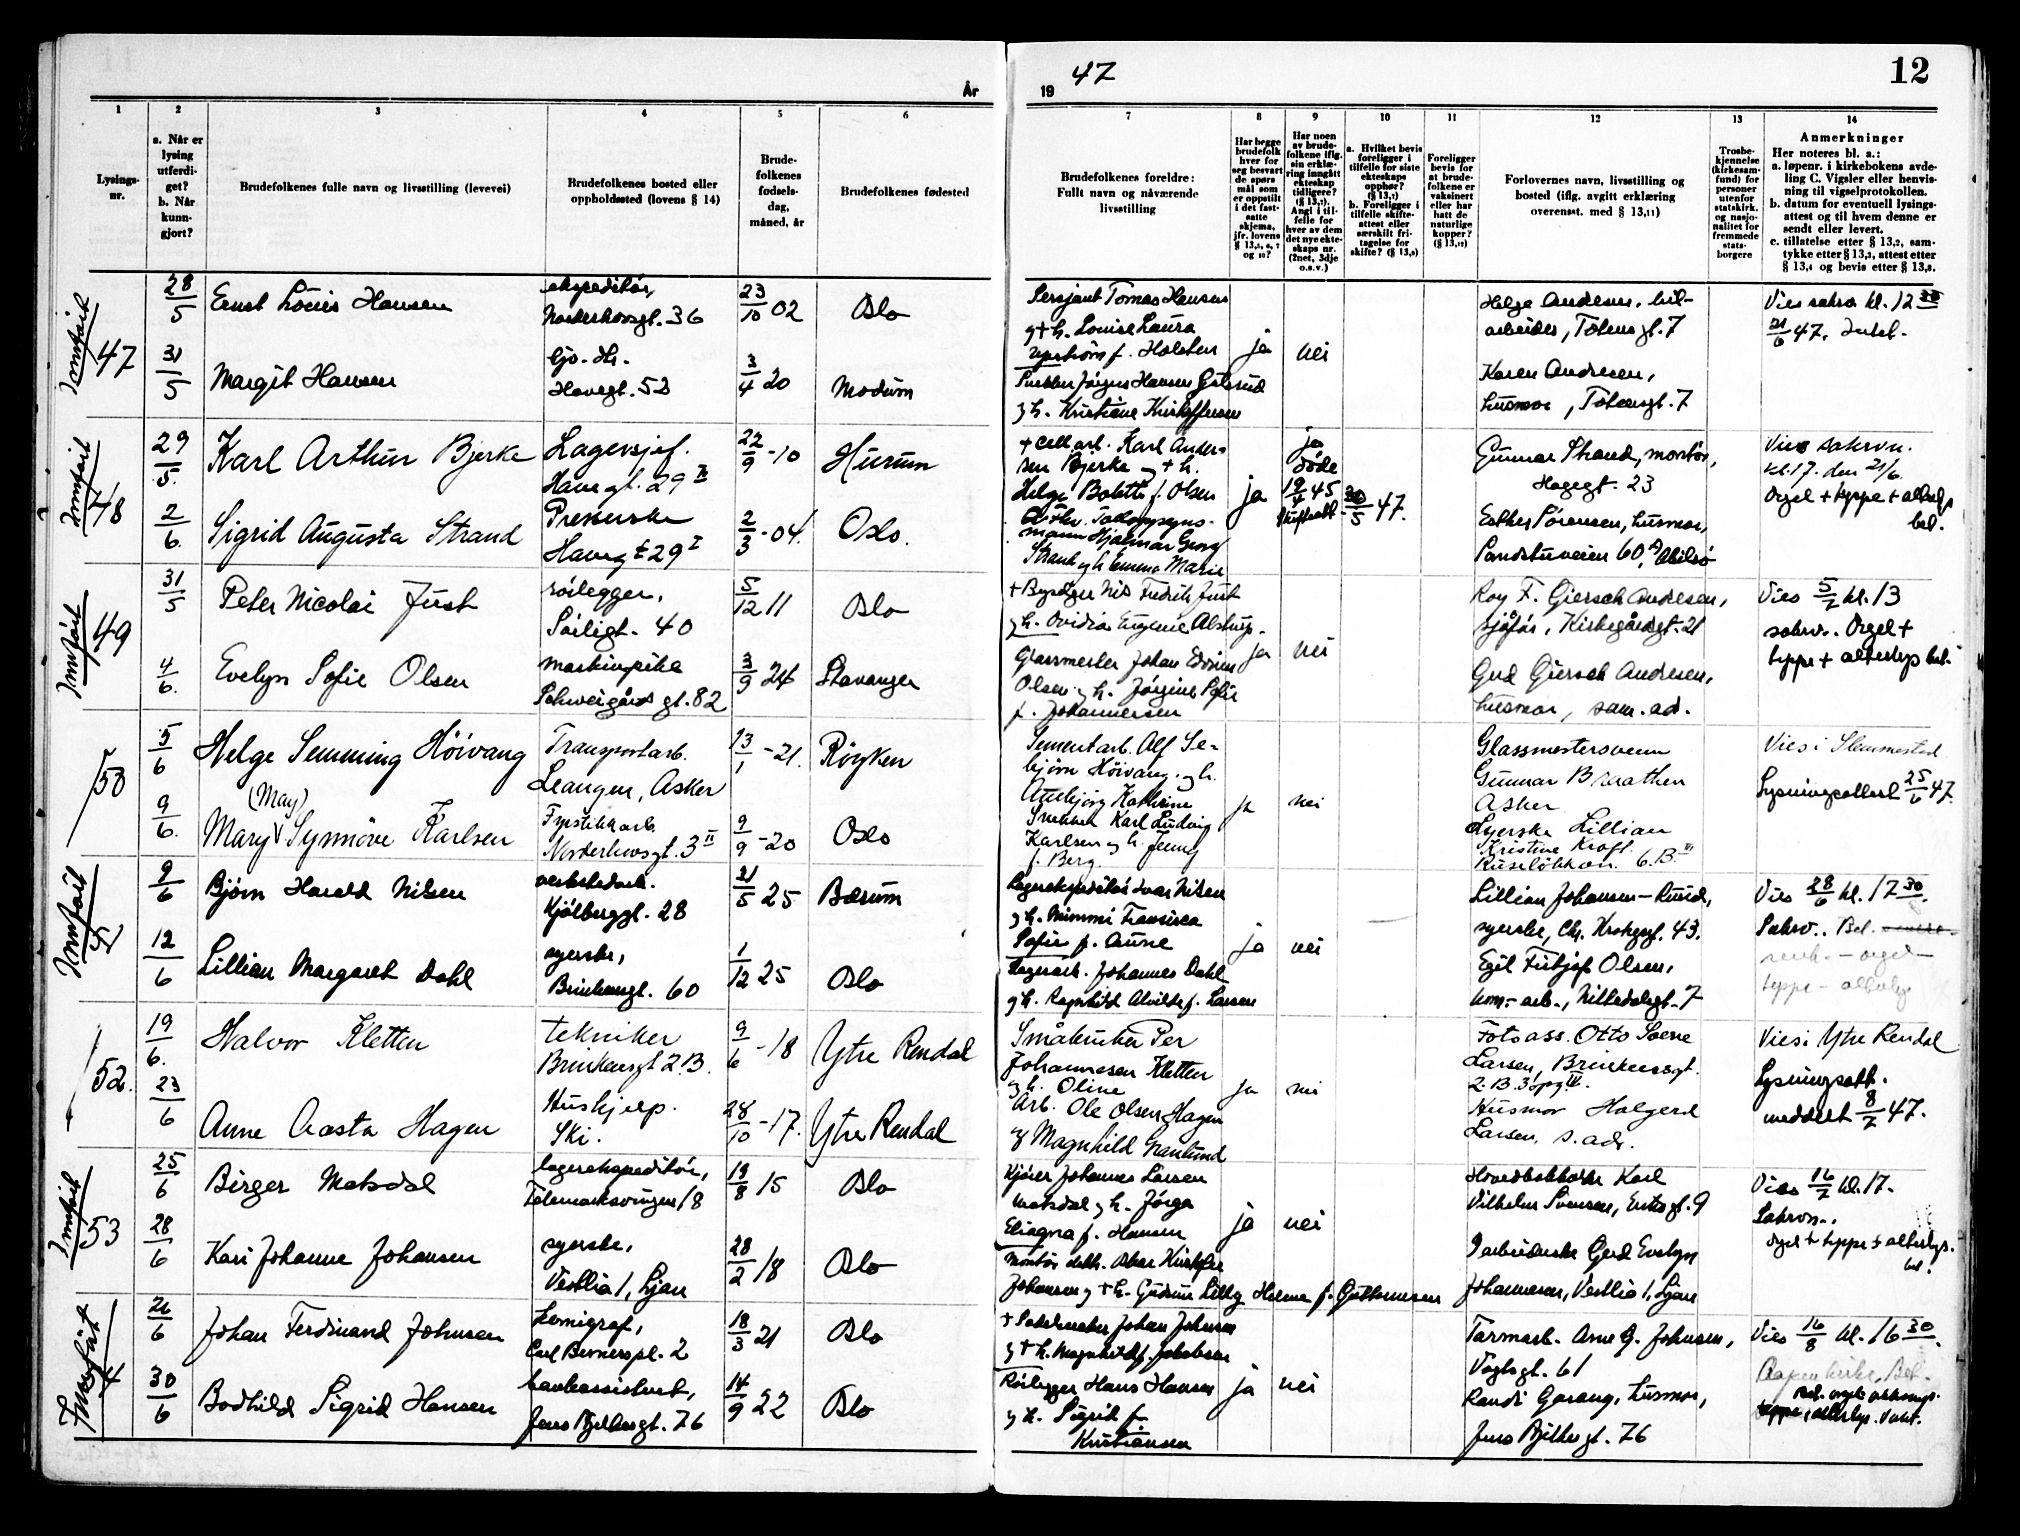 År
19 47
12
1
2
3
4
5
6
7
8
9
10
11
12
13
14
Lysings-
nr.
a. Når er
lysing
utferdi-
get?
b. Når
kunn-
gjort?
Brudefolkenes fulle navn og livsstilling (levevei)
Brudefolkenes bosted eller
oppholdssted (lovens § 14)
Brude-
folkenes
fødsels-
dag,
måned, år
Brudefolkenes fødested
Brudefolkenes foreldre:
Fullt navn og nåværende
livsstilling
Har begge
brudefolk
hver for
seg besvart
de spørs
mål som
er oppstilt
i det fast-
satte
skjema,
jfr. lovens
Har noen
av brude-
folkene iflg.
sin erklæ-
ring inngått
ekteskap
tidligere?
Angi i til-
felle for
hver av dem
det nye ekte-
skaps nr.
(2net, 3dje
o.s.v.)
a. Hvilket bevis
foreligger i
tilfelle for siste
ekteskaps
opphør?
b. Foreligger i
tilfelle skifte-
attest eller
særskilt fri-
tagelse for
skifte?
Foreligger
bevis for
at brude-
folkene er
vaksinert
eller har
hatt de
naturlige
kopper?
Forlovernes navn, livsstilling og
bosted (iflg. avgitt erklæring
overensst. med § 13,11)
Trosbe-
kjennelse
(kirkesam-
fund) for
personer
utenfor
statskirk.
og nasjo-
nalitet for
fremmede
stats-
borgere
Anmerkninger
Her noteres bl. a.:
a. løpenr. i kirkebokens avde-
ling C. Vigsler eller henvis-
ning til vigselprotokollen.
b. datum for eventuell lysings-
attest og til hvem denne er
sendt eller levert.
c. tillatelse etter § 13,2, sam-
tykke etter § 13,3, attest etter
§ 13,4 og bevis etter § 13,8.
Innført
47
28/5
Ernst Louis Hansen
ekspeditør,
Norderhovsgt. 36
23/10 02
Oslo
Sersjant Tomas Hansen
og + h. Louise Laura
f. Holsten
ja
nei
Helge Andresen, bil-
arbeider, Totensgt. 7
Vies sakrv. kl. 12 30
21/6 47.
31/5
Margit Hansen
Havegt. 53
3/4 20
Modum
og h. Kristiane Kristoffersen
Karen Andresen,
husmor, Totensgt. 7
Innført
48
29/5.
Karl Arthur Bjerke
Lagersjef.
Havegt. 29 II
22/9 -10
Hurum
+ Cell. arb. Karl Ander-
sen Bjerke og + h.
Helga Bolette f. Olsen
ja
ja
døde
19/4 45
30/5 47.
Gunnar Strand, montør,
Hagegt. 23
Vies sakrv.
kl. 17. den 21/6.
Orgel + teppe + alterlys
bel.
2/6.
Sigrid Augusta Strand
Presserske
Havegt 29 I
2/3 -04.
Oslo.
mann Hjalmar Georg
Strand og h. Emma Marie
Esther Sørensen, husmor,
Sandstuveien 60 A, Abilsø
Innført
49
31/5
Peter Nicolai Just
rørlegger,
Sørligt. 40
5/12 11
Oslo
Nils Fredrik Just
og h. Ovidia Eugenie Alstrup.
ja
nei
Roy F. Giersch Andresen,
sjåfør, Kirkegårdsgt. 21
Vies 5/7 kl. 13
sakrv. Orgel +
teppe + alterlys bel.
4/6.
Evelyn Sofie Olsen
maskinpike
Schweigårds gt. 82
3/9 24
Stavanger
Glassmester Johan Edvin
Olsen og h. Jørgine Sofie
f. Johannesen
Gerd Giersch Andresen,
husmor, sam. ad.
50
5/6
Helge Semming Höivang
Transportarb.
Leangen, Asker
13/1 -21.
Röyken
Sementarb. Alf Se-
björn Höivang og h.
Annbjörg Kathrine
ja
nei
Glassmestersvenn
Gunnar Braathen
Asker
Vies i Slemmestad
Lysningsattest 25/6 47.
9/6.
(May)
Mary Synnöve Karlsen
Fyrstikkarb.
Norderhovsgt. 3 II
9/9 -20
Oslo
Snekker Karl Ludvig
Karlsen og h. Jenny
f. Berg
Syerske Lillian
Kristine Kroft.
6. B. III
Innført
51
9/6
Bjørn Harald Nilsen
verkstedarb.
Kjølberggt. 28
21/5 25
Bærum
Lagerekspeditør Ivar Nilsen
og h. Mimmi Fransisca
Sofie f. Aune
ja
nei
Lillian Johansen-Ruud,
syerske, Chr. Krohgsgt. 43.
Vies 28/6 kl. 17 30.
Sakrv. Bel.
senk. - orgel -
teppe - alterlys
12/6
Lillian Margaret Dahl
syerske,
Brinkensgt. 60
1/12 25
Oslo
Lagerarb. Johannes Dahl
og h. Ragnhild Alvilde f. Larsen
Egil Fritjof Olsen,
kom.-arb., Nittedalsgt. 7
52.
19/6.
Halvor Kletten
tekniker
Brinkensgt 2 B.
9/6 -18
Ytre Rendal
Småbruker Per
Johannesen Kletten
og h. Oline
ja
nei
Fotoass. Otto Saene
Larsen, Brinkensgt.
2. B. 3 opg. II.
Vies i Ytre Rendal
Lysningsatt.
meddelt 8/7 47.
23/6
Anne Aasta Hagen
Hushjelp.
Ski.
28/10 -17.
Ytre Rendal
Arb. Ole Olsen Hagen
og Magnhild Granlund
Husmor Holgerd
Larsen. s. adr.
Innført
53
25/6
Birger Matsdal
lagerekspeditør,
Telemarksvingen 18
19/8 15
Oslo
Kjører Johannes Larsen
Matsdal og h. Jørga
Eliagna f. Hansen
ja
nei
Karl
Vilhelm Svensen, Eriksgt. 9
Vies 16/7 kl. 17.
Sakrv.,
orgel + teppe + alterlys.
bel.
28/6
Kari Johanne Johansen
syerske,
Vestlia 1, Ljan
28/2 18
Oslo
Johansen og + h. Gudrun Lilly Helene f. Guttormsen
Gerd Evelyn
Johannesen, Vestlia 1, Ljan
Innført
54
26/6
Johan Ferdinand Johnsen
kemigraf,
Carl Berners pl. 2
18/3 21
Oslo
+ Salmaker Johan Johnsen
og + h. Magnhild f. Jakobsen
ja
nei
Tarmarb. Arne G. Johnsen,
Vogtsgt. 61
Vies 16/8 kl. 16 30.
30/6
Bodhild Sigrid Hansen
bankassistent,
Jens Bjelkesgt. 76
14/9 22
Oslo
Rørlegger Hans Hansen
og h. Sigrid f.
Kristiansen
Randi Garang, husmor,
Jens Bjelkesgt. 76